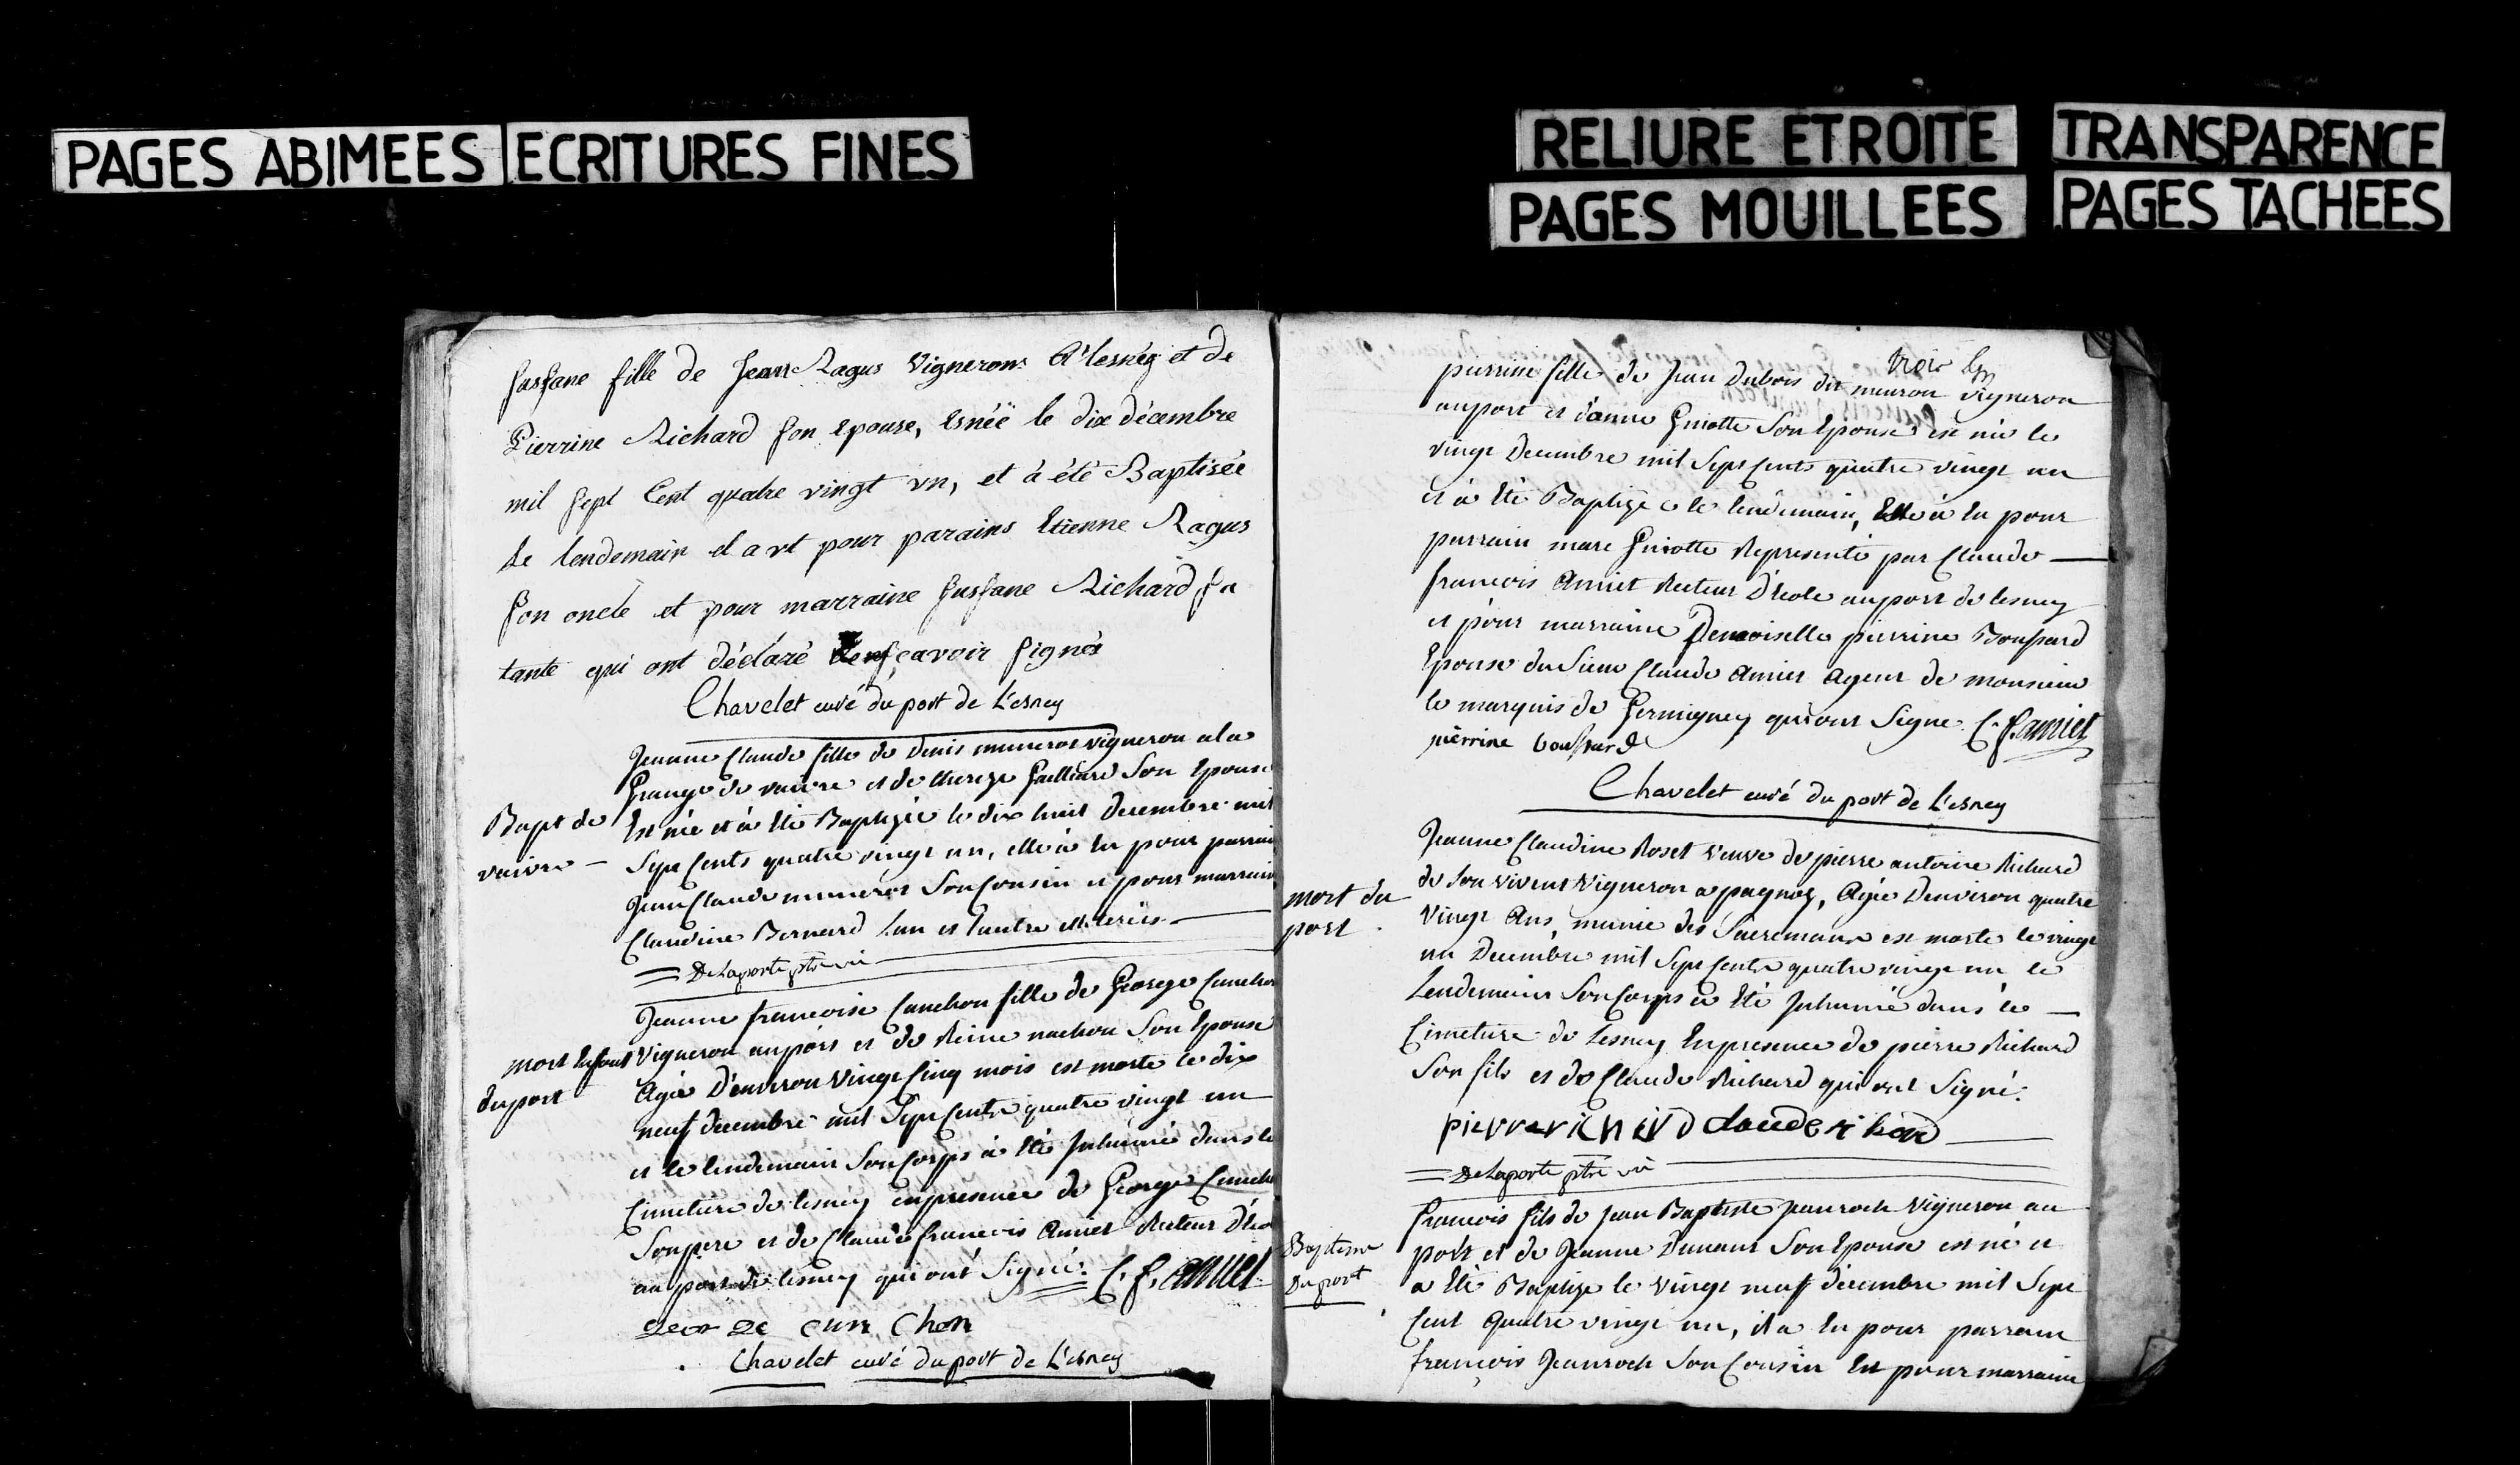 PAGES ABIMEES ECRITURES FINES
RELIURE ETROITE
PAGES MOUILLEES
TRANSPARENCE
PAGES TACHEES
susfane fille de Jean Ragus vigneron à lesney et de
Pierrine Richard son epouse, esnéë le dix décembre
mil sept Cent quatre vingt vn, et à été Baptisée
le lendemain el a vt pour parains Etienne Ragus
son oncle et pour marraine susfane Richard sa
tante qui ont déclaré sçavoir signés
Chavelet curé du port de L'esney
Jeanne Claude fille de Denis vigneron a la
Grange de vaivre et de thereze Gaillard Son Epouse
Bapt de
vaivre –
Est née et à Eté Baptizée le dix huit Decembre mil
Sept Cents quatre vingt un, elle à Eu pour parrain
Jean Claude Son Cousin et pour marraine
Claudine Bernard l'un et l'autre illiterés
DeLaporte ptre vic
Jeanne francoise Cunchon fille de George Cunchon
mort Enfant
du port
Vigneron au port et de Reine nachon Son Epouse
Agée D'environ Vingt Cinq mois est morte le dix
neuf decembre mil Sept Cents quatre vingt un
et le lendemain Son Corps à Eté Inhumé dans le
Cimetiere de lesney en presence de George Cuncho
Son pere et de Claude francois Amiet Recteur D'éco
au port de lesney qui ont Signé. C. f. amiet
George cun Chon
Chavelet curé du port de L'esney
trois
pierrine fille de Jean Dubois dit vigneron
au port et d'anne Guiotte Son Epouse est née le
vingt Decembre mil Sept Cents quatre vingt un
et à Eté Baptizée le lendemain, Elle à Eu pour
parrain marc Guiotte Representé par Claude
francois Amiet Recteur D'école au port de lesney
et pour marraine Demoiselle pierrine Boussard
Epouse du Sieur Claude Amiet Agent de monsieur
le marquis de Germigney qui ont Signé. C. f. amiet
pierrine boussard
Chavelet curé du port de L'esney
Jeanne Claudine Roset veuve de pierre antoine Richard
mort du
port
de Son vivant Vigneron a pagnoz, Agée Denviron quatre
Vingt Ans, munie des Sacremans est morte le vingt
un Decembre mil Sept Cents quatre vingt un le
Lendemain Son Corps à Eté Inhumé dans le
Cimetiere de Lesney En presence de pierre Richard
Son fils et de Claude Richard qui ont Signé:
pierre richard claude richard
DeLaporte ptre vic
Baptême
Du port
francois fils de Jean Baptiste Jeanroch Vigneron au
port et de Jeanne Dunant Son Epouse est né et
a Eté Baptizé le vingt neuf décembre mil Sept
Cent Quatre vingt un, il a Eu pour parrain
francois Jeanroch Son Cousin Et pour marraine